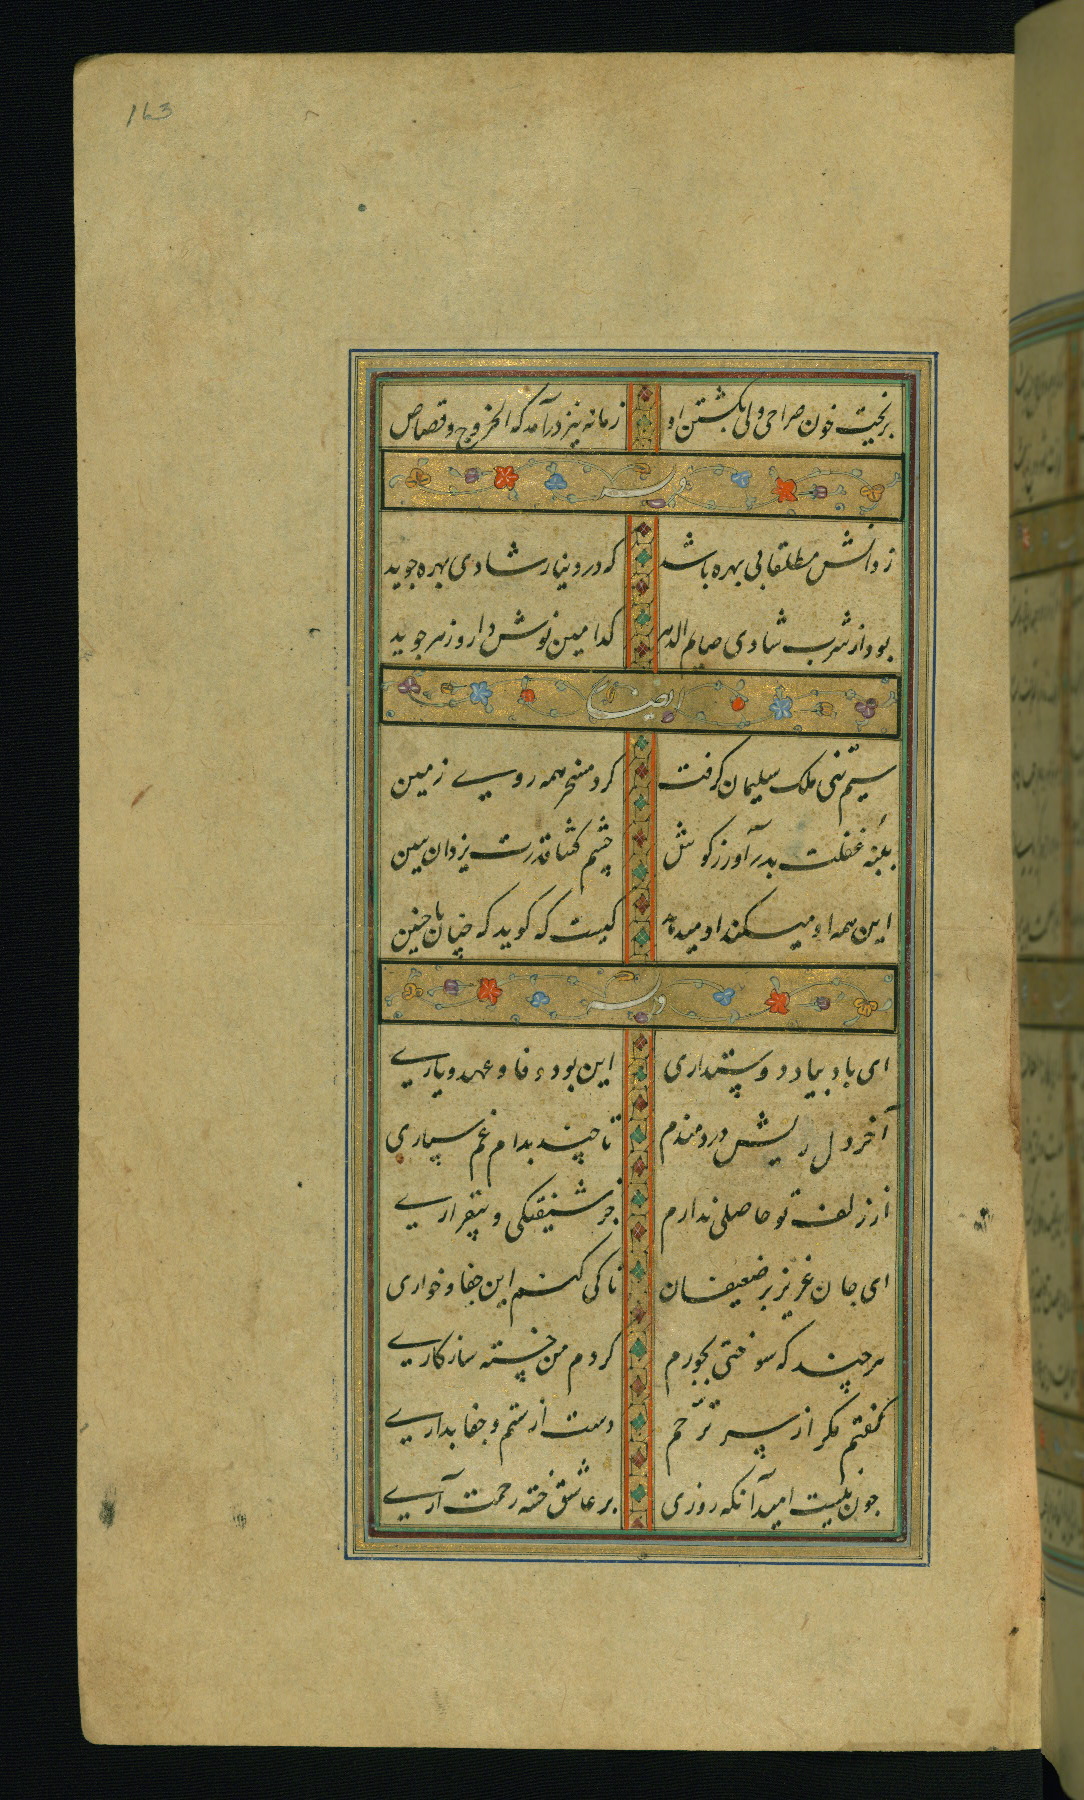 163
بریخت خون صراحی ولی بکشتن او زمانه نیز درآمد که الخروج و قصاص
وله
ز دانش مطلقا بی بهره باشد که در دنیا ز شادی بهره جوید
بود از شرب شادی صایم الدهر کدامین نوش دارو زهر جوید
ایضا
سیم تنی ملک سلیمان گرفت کرد مسخر همه روی زمین
پنبه غفلت بدر آور ز گوش چشم گشا قدرت یزدان ببین
این همه او میکند او میدهد کیست که گوید که چنان یا چنین
وله
ای باد بیاد دوستداری این بود وفا و عهد و یاری
آخر دل ریش دردمندم تا چند بدام غم سپاری
از زلف تو حاصلی ندارم جز شیفتگی و بیقراری
ای جان عزیز بر ضعیفان تا کی کنم این جفا و خواری
هر چند که سوختی بجورم کردم من خسته سازکاری
گفتم مگر از سر ترحم دست از ستم و جفا بداری
چون نیست امید آنکه روزی بر عاشق خسته رحمت آری